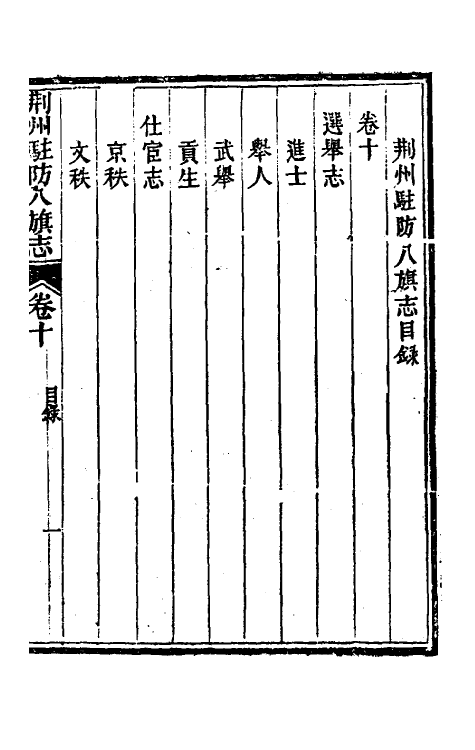 荆州駐防八旗志目録
卷十
選舉志
進士
舉人
武舉
貢生
仕宦志
京秩
文秩
荆州駐防八旗志
卷十
目録
一